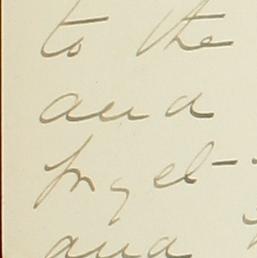 to the
and
forget-
and